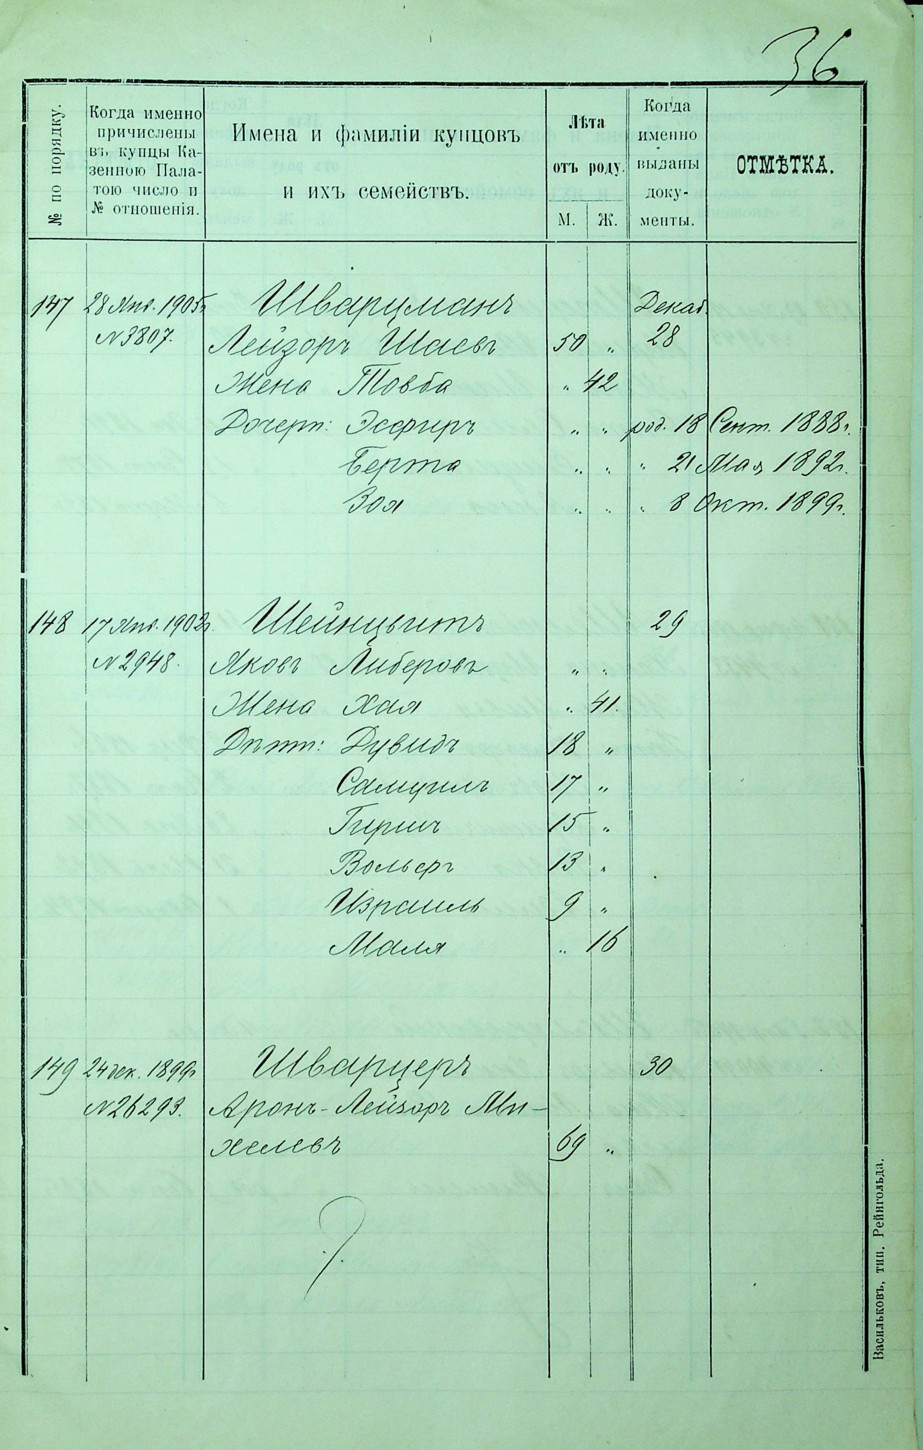 36
№ по порядку.
Когда именно
причислены
въ купцы Ка-
зенною Пала-
тою число и
№ отношенія.
Имена и фамиліи купцовъ
и ихъ семействъ.
Лѣта
отъ роду.
М. Ж.
Когда
именно
выданы
доку-
менты.
ОТМѢТКА.
147 28 Янв. 1905г. Шварцманъ Декаб.
№3807. Лейзоръ Шаевъ 50 „ 28
Жена Товба „ 42
Дочери: Эсфирь „ „ род. 18 Сент. 1888г.
Берта „ „ „ 21 Мая 1892г.
Зоя „ „ „ 8 Окт. 1899г.
148 17 Янв. 1902г. Шейнцвитъ 29
№2948. Яковъ Либеровъ „ „
Жена Хая „ 41.
Дѣти: Дувидъ 18 „
Самуилъ 17 „
Гершъ 15 „
Вольфъ 13 „
Израиль 9 „
Маля „ 16
149 24 дек. 1899г. Шварцеръ 30
№26293. Аронъ-Лейзоръ Ми-
хелевъ 69 „
Васильковъ, тип. Рейнгольда.